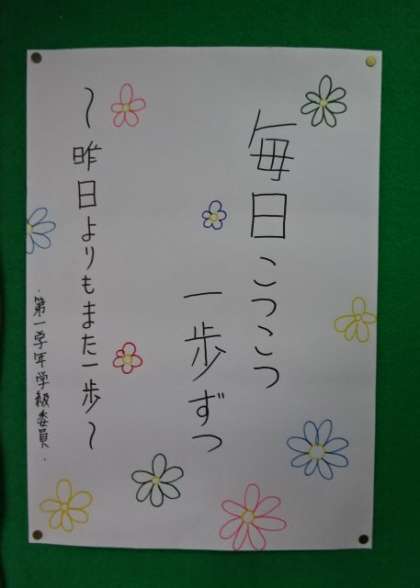 毎日こつこつ
一歩ずつ
～昨日よりもまた一歩～
・第一学年学級委員・